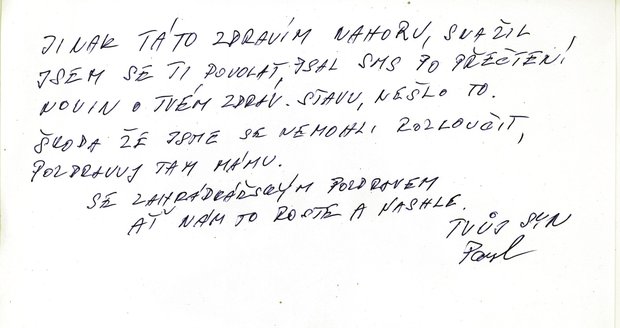 JINAK TÁTO ZDRAVÍM NAHORU, SNAŽIL
JSEM SE TI POVOLAT, PSAL SMS PO PŘEČTENÍ
NOVIN O TVÉM ZDRAV. STAVU, NEŠLO TO.
ŠKODA ŽE JSME SE NEMOHLI ROZLOUČIT,
POZDRAVUJ TAM MÁMU.
SE ZAHRÁDKÁŘSKÝM POZDRAVEM
AŤ NÁM TO ROSTE A NASHLE.
TVŮJ SYN
Pavel